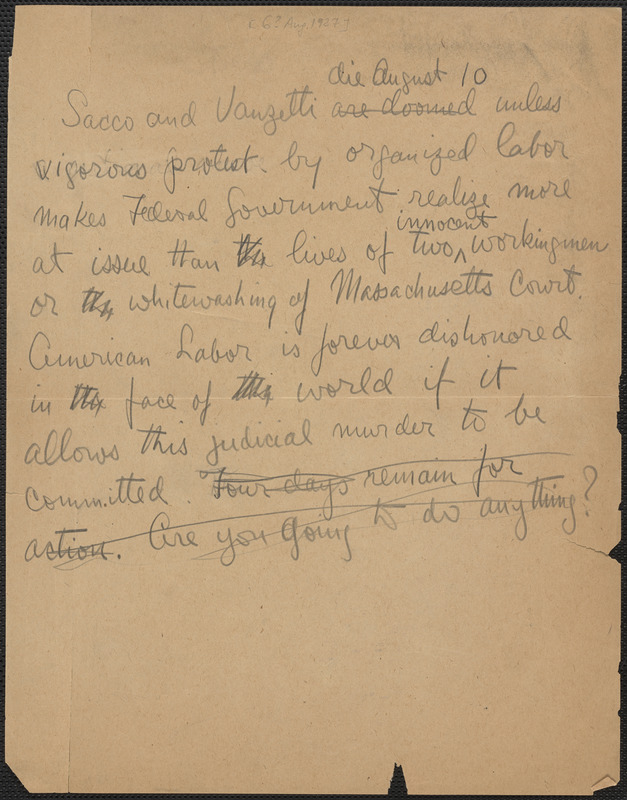 ( 6? Aug. 1927?)
die August 10
Sacco and Vanzetti are doomed unless
vigorous protest by organized labor
makes Federal Government realize more
innocent
at issue than the lives of two ^ workingmen
or the whitewashing of Massachusetts Court.
American Labor is forever dishonored
in the face of the world if it
allows this judicial murder to be
committed. Four days remain for
action. Are you going to do anything?